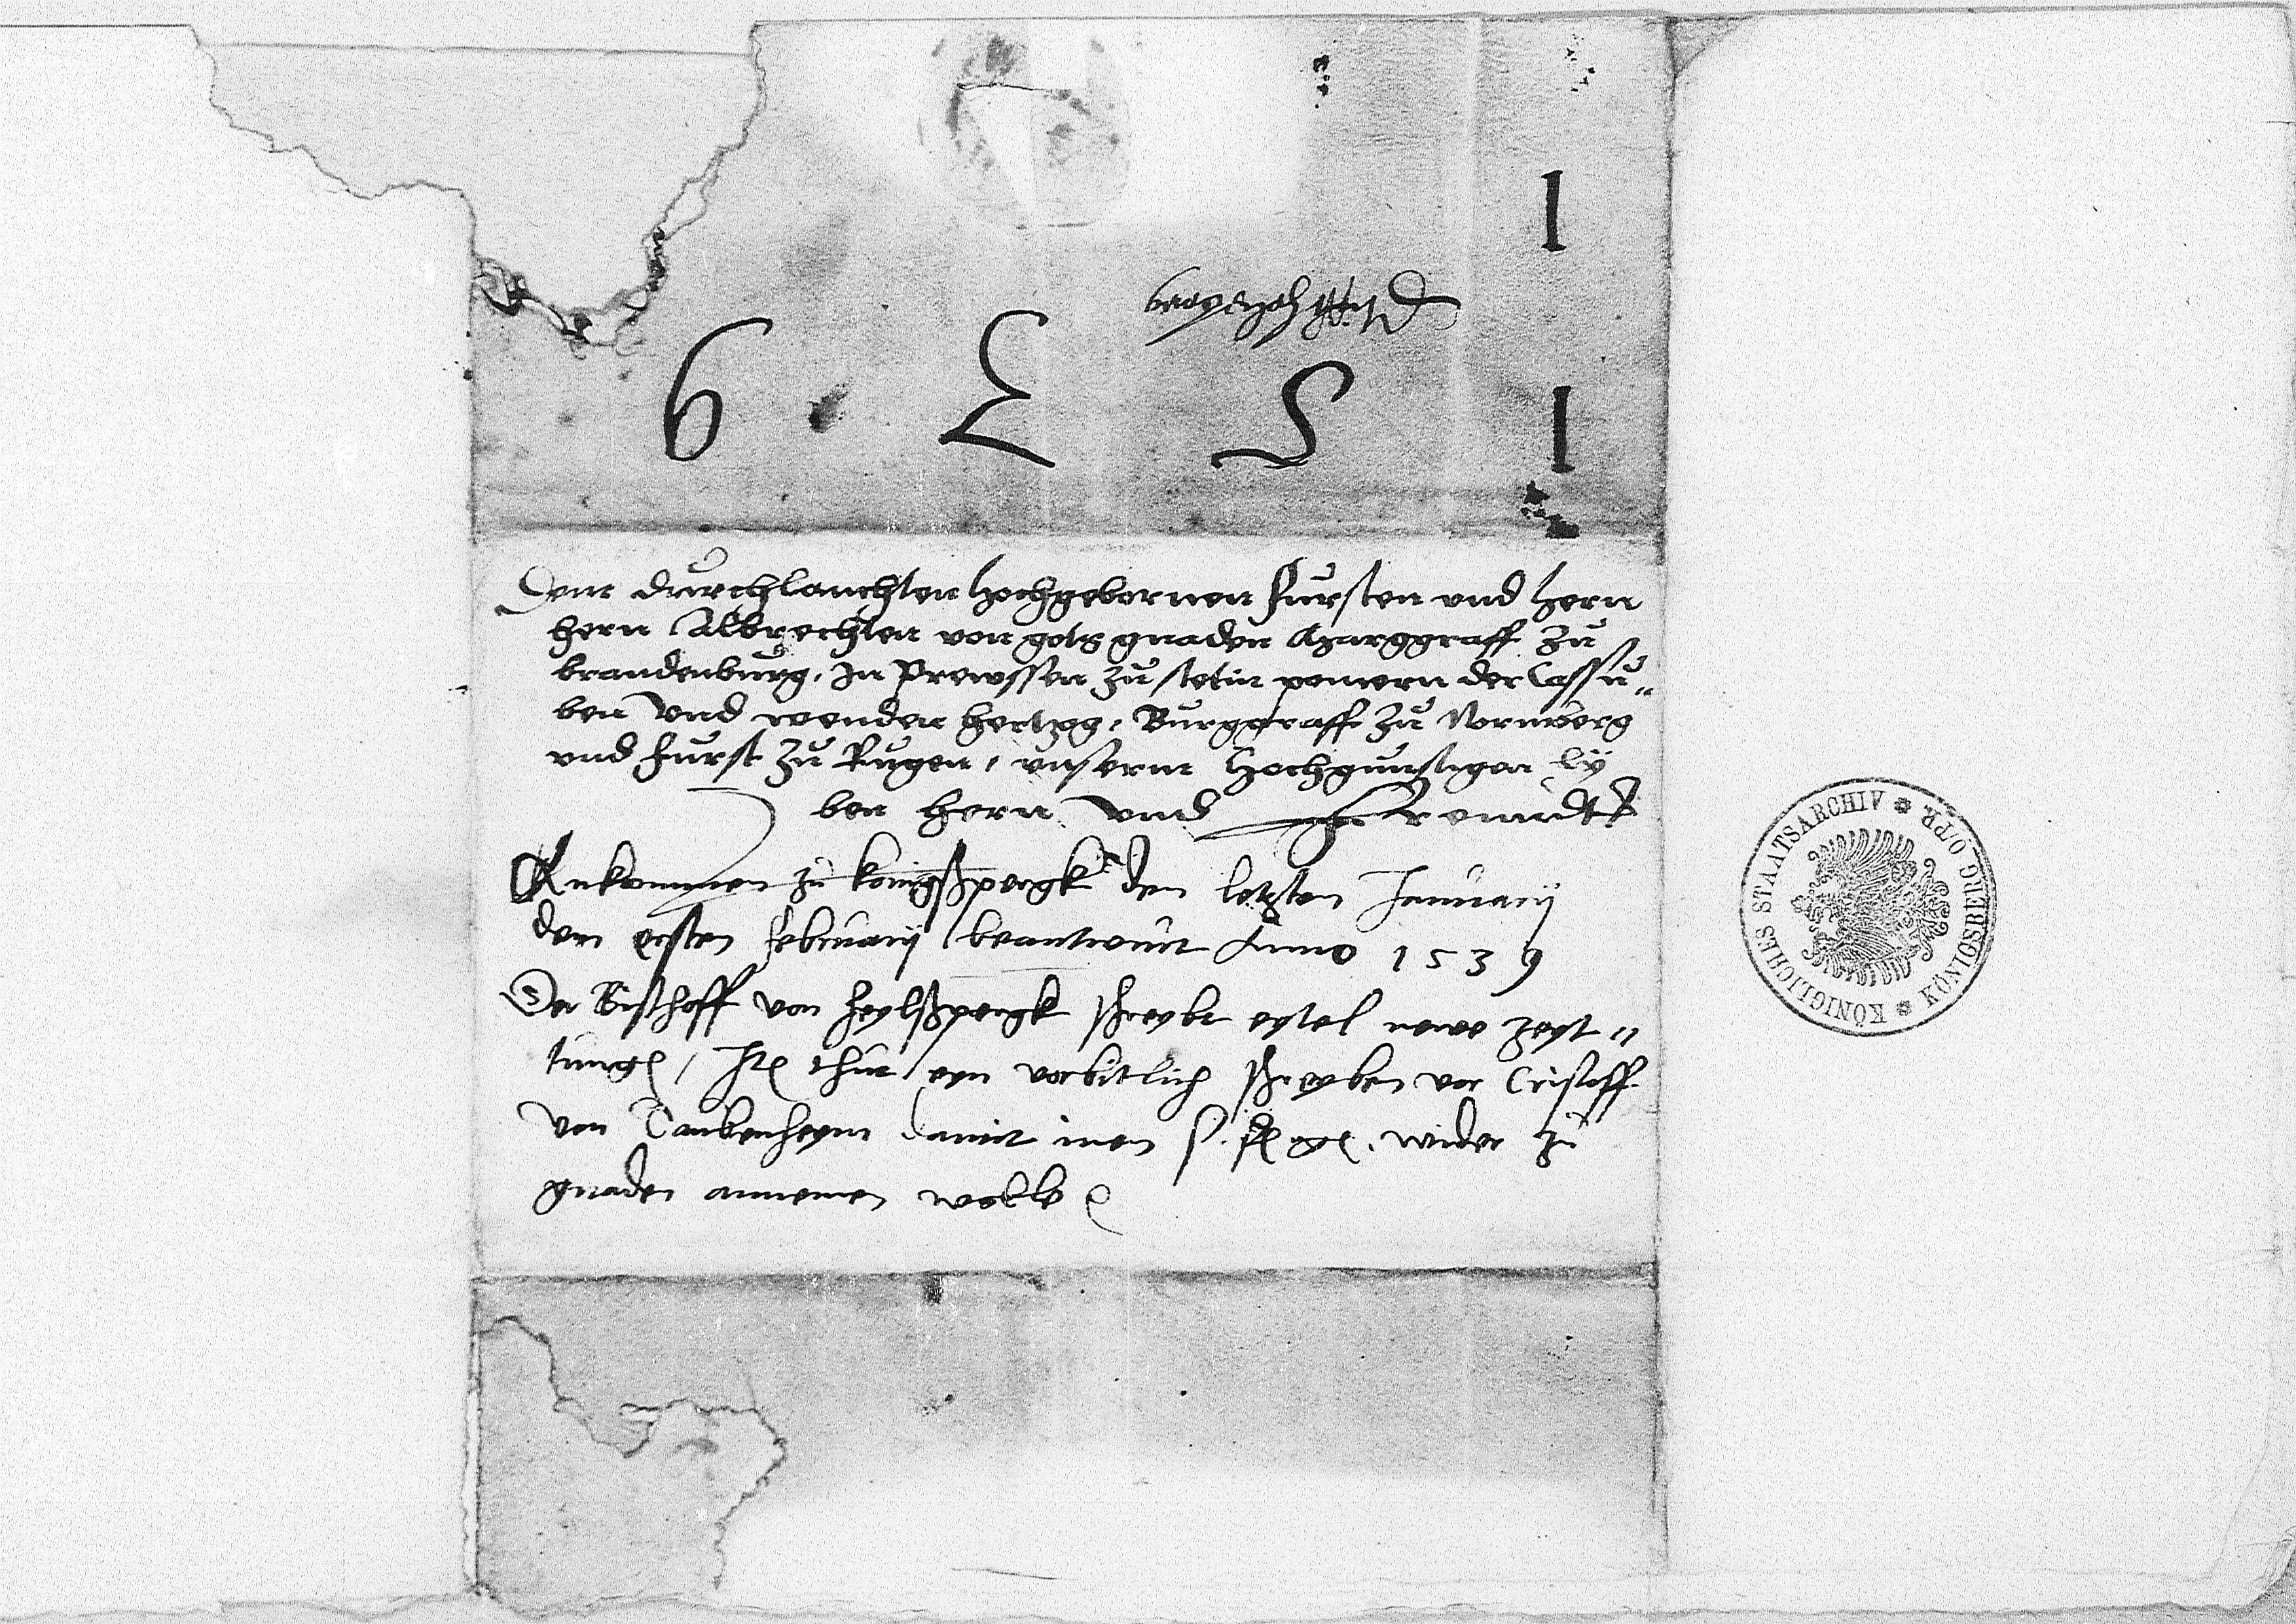 1
6 3 5 1
Dem durchlauchten hochgebornen fursten und hern
hern Albrechten von gots gnaden Marggraff zu
brandenburg, In Prewssen zu stetin pomern der Cassu„
ben und wenden hertzog, Burggraff zu Nornberg
und furst zu Rugen, unserm hochgunstigen ly
ben hern und frundt
Ankommen zu konigßpergk den letzten January
den ersten february beantwurt Anno 1539
Der Bischoff von heylßpergk schreybt eytel newe zeyt„
tung, It thut eyn vorbitlich schreyben vor Cristoff
von Taubenheym damit inen f. wider zu
gnaden annemen wolle
KÖNIGLICHES STAATSARCHIV * KÖNIGSBERG O/PR *